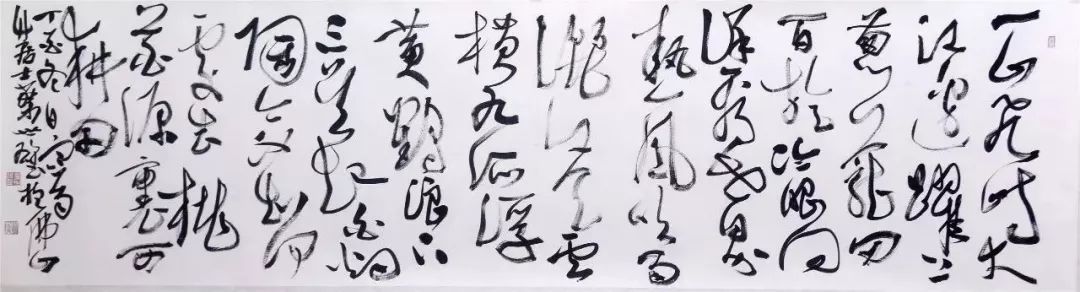 一山飞峙大
江边跃上
葱茏四
百旋冷眼向
洋看世界
热风吹雨
洒江天云
横九派浮
黄鹤浪下
三吴起白烟
陶令不知何
处去桃
花源里可
耕田
丁酉冬日
山居士葉世於佛山